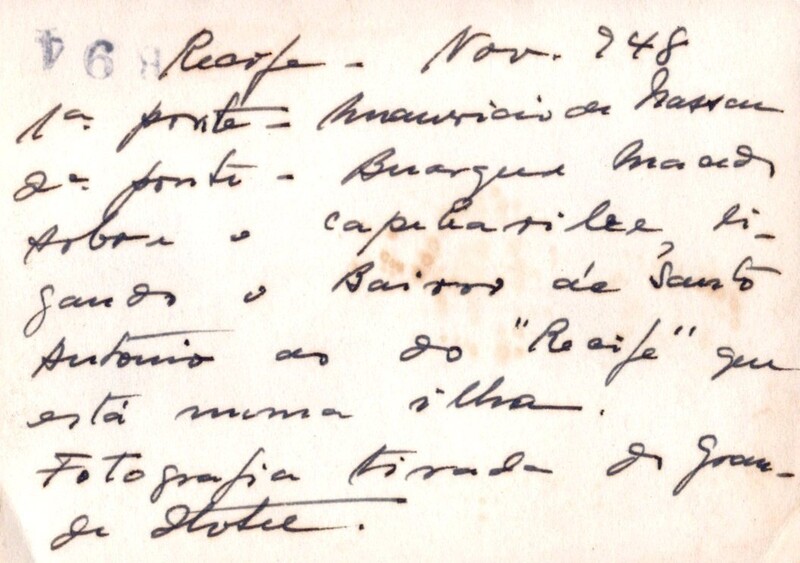 Recife - Nov. 948
1ª ponte - Mauricio de Nassau
2ª ponte - Buarque Macedo
sobre o Capibaribe, li-
gando o Bairro de Santo
Antonio ao do "Recife" que
está numa ilha.
Fotografia tirada do Gran-
de Hotel.